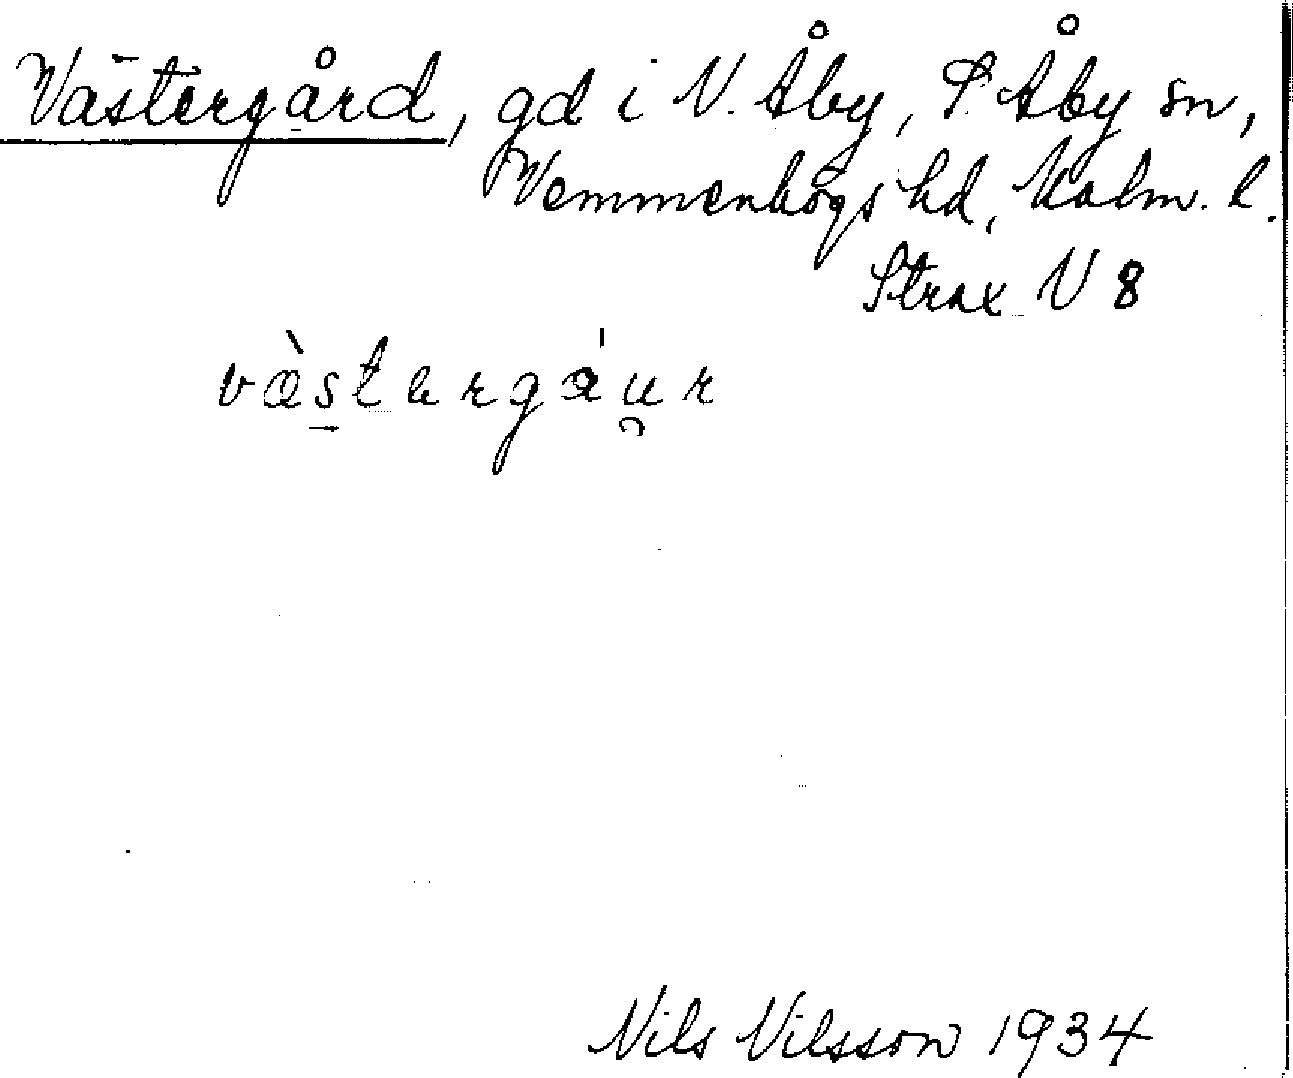 Västergård, gd i N. Åby, S. Åby sn,
Vemmenhögs hd, Malm. l.
Strax N 8
væ̀stergáu̯r
Nils Nilsson 1934